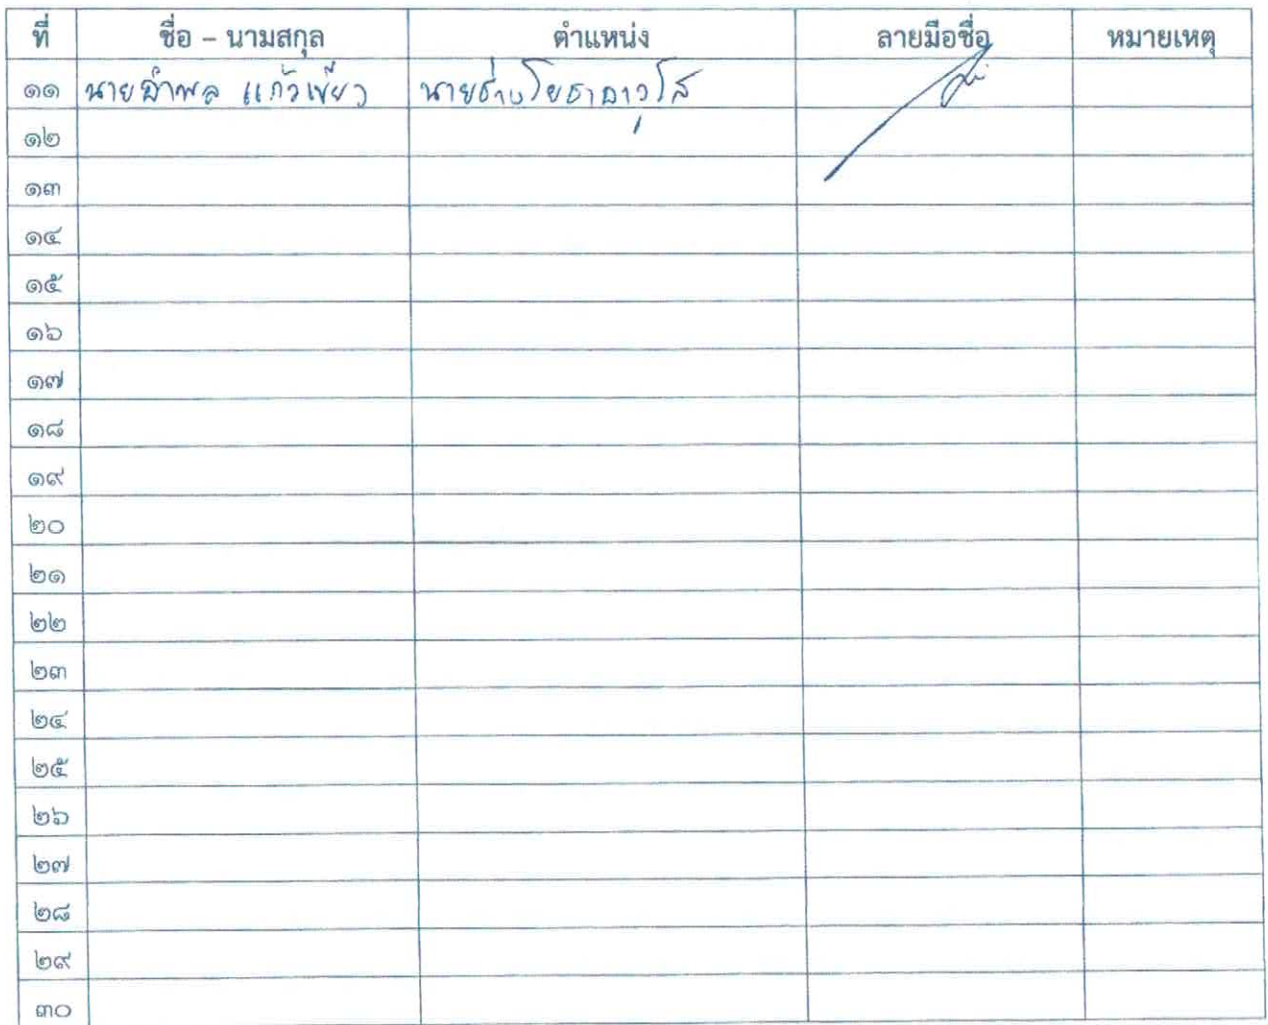 ที่ ชื่อ – นามสกุล ตำแหน่ง ลายมือชื่อ หมายเหตุ
๑๑ นายอำพล แก้วเขียว นายช่างโยธาอาวุโส
๑๒
๑๓
๑๔
๑๕
๑๖
๑๗
๑๘
๑๙
๒๐
๒๑
๒๒
๒๓
๒๔
๒๕
๒๖
๒๗
๒๘
๒๙
๓๐